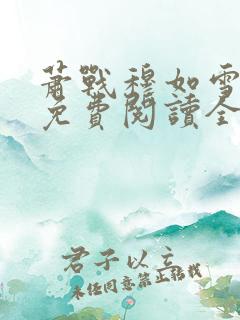 萧戰穆如雪
免費閱讀全
君子以立
未经同意禁止转载